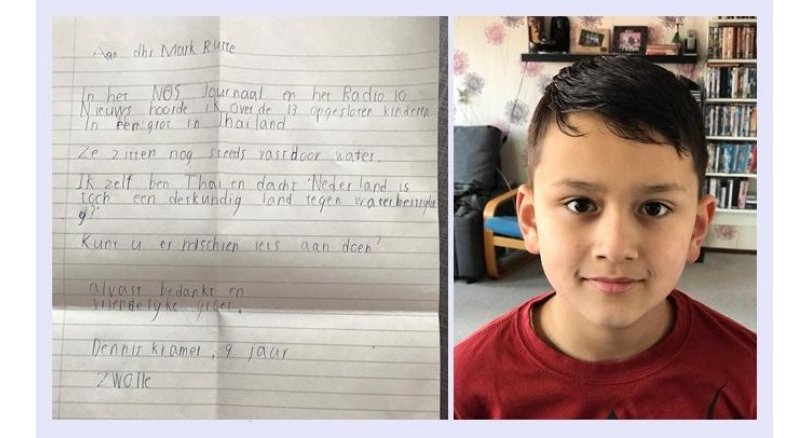 Aan dhr Mark Rutte
In het NOS Journaal en het Radio 10
Nieuws hoorde ik over de 13 opgesloten kinderen
In een grot in Thailand
Ze zitten nog steeds vast door water.
Ik zelf ben Thai en dacht "Nederland is
toch een deskundig land tegen
g?"
Kunt u er mischien iets aan doen?
alvast bedankt en
vriendelyke groet,
Dennis kramer, 9 jaar
ZWOlle